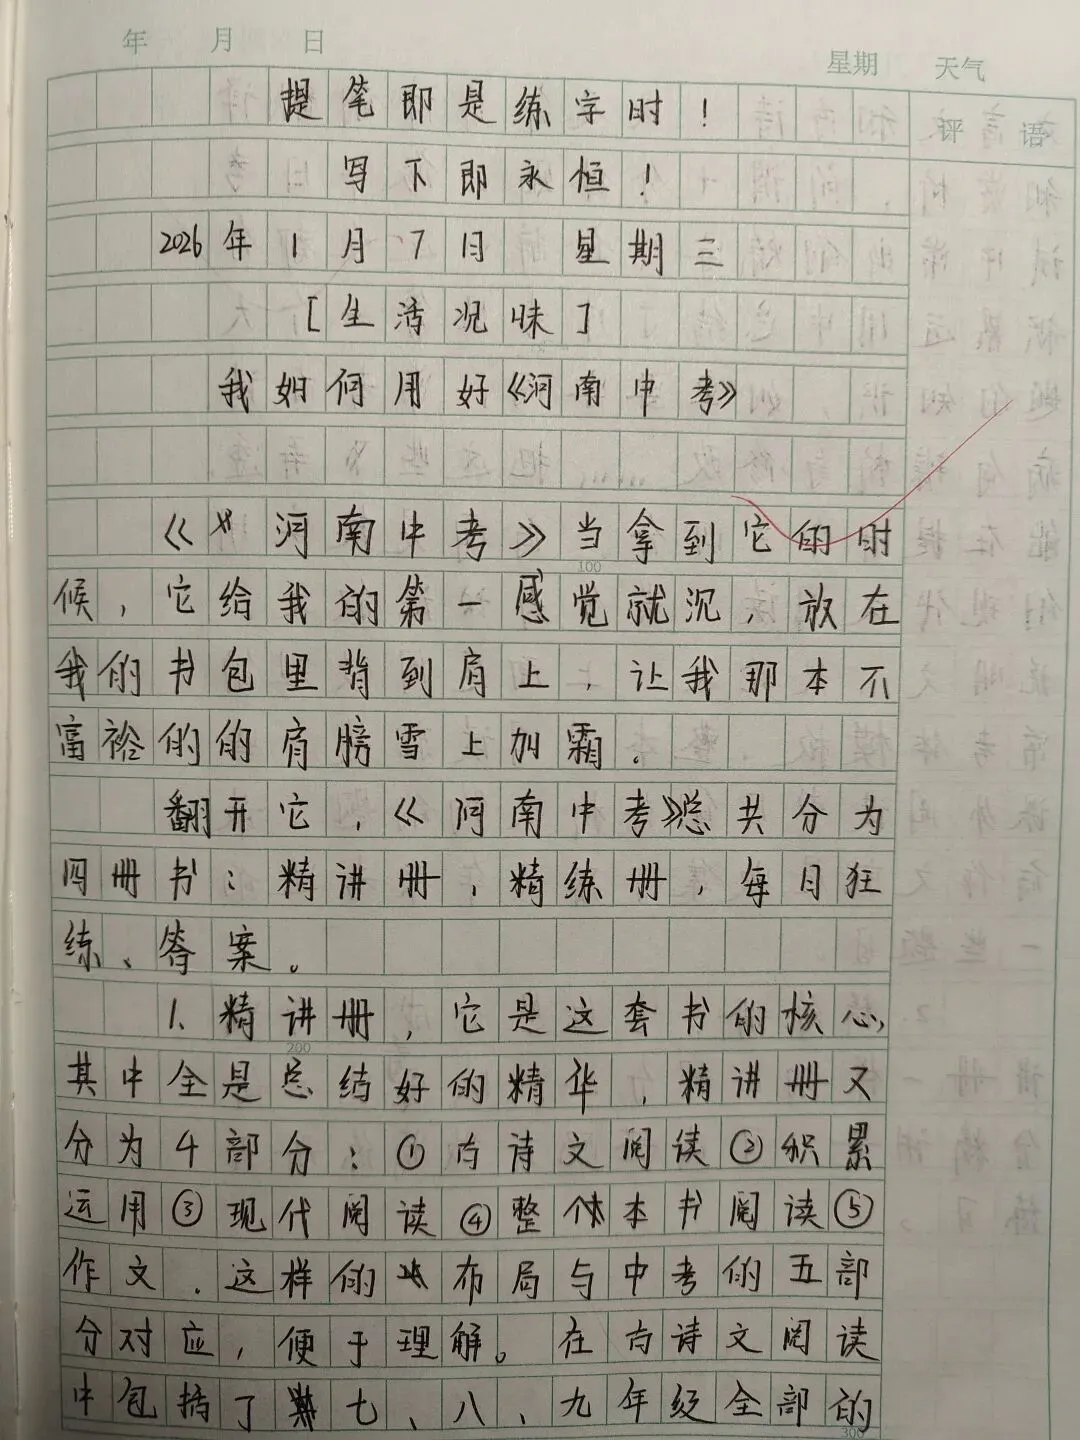 年 月 日 星期 天气
提笔即是练字时！
评语
写下即永恒！
2026年1月7日 星期三
[生活况味]
我如何用好《河南中考》
《河南中考》当拿到它的时
100
候，它给我的第一感觉就沉，放在
我的书包里背到肩上，让我那本不
富裕的的肩膀雪上加霜．
翻开它，《河南中考》总共分为
四册书：精讲册，精练册，每月狂
练、答案。
1、精讲册，它是这套书的核心，
200
其中全是总结好的精华，精讲册又
分为4部分：①古诗文阅读②积累
运用③现代阅读④整本书阅读⑤
作文．这样的布局与中考的五部
分对应，便于理解。在古诗文阅读
中包括了七、八、九年级全部的
300